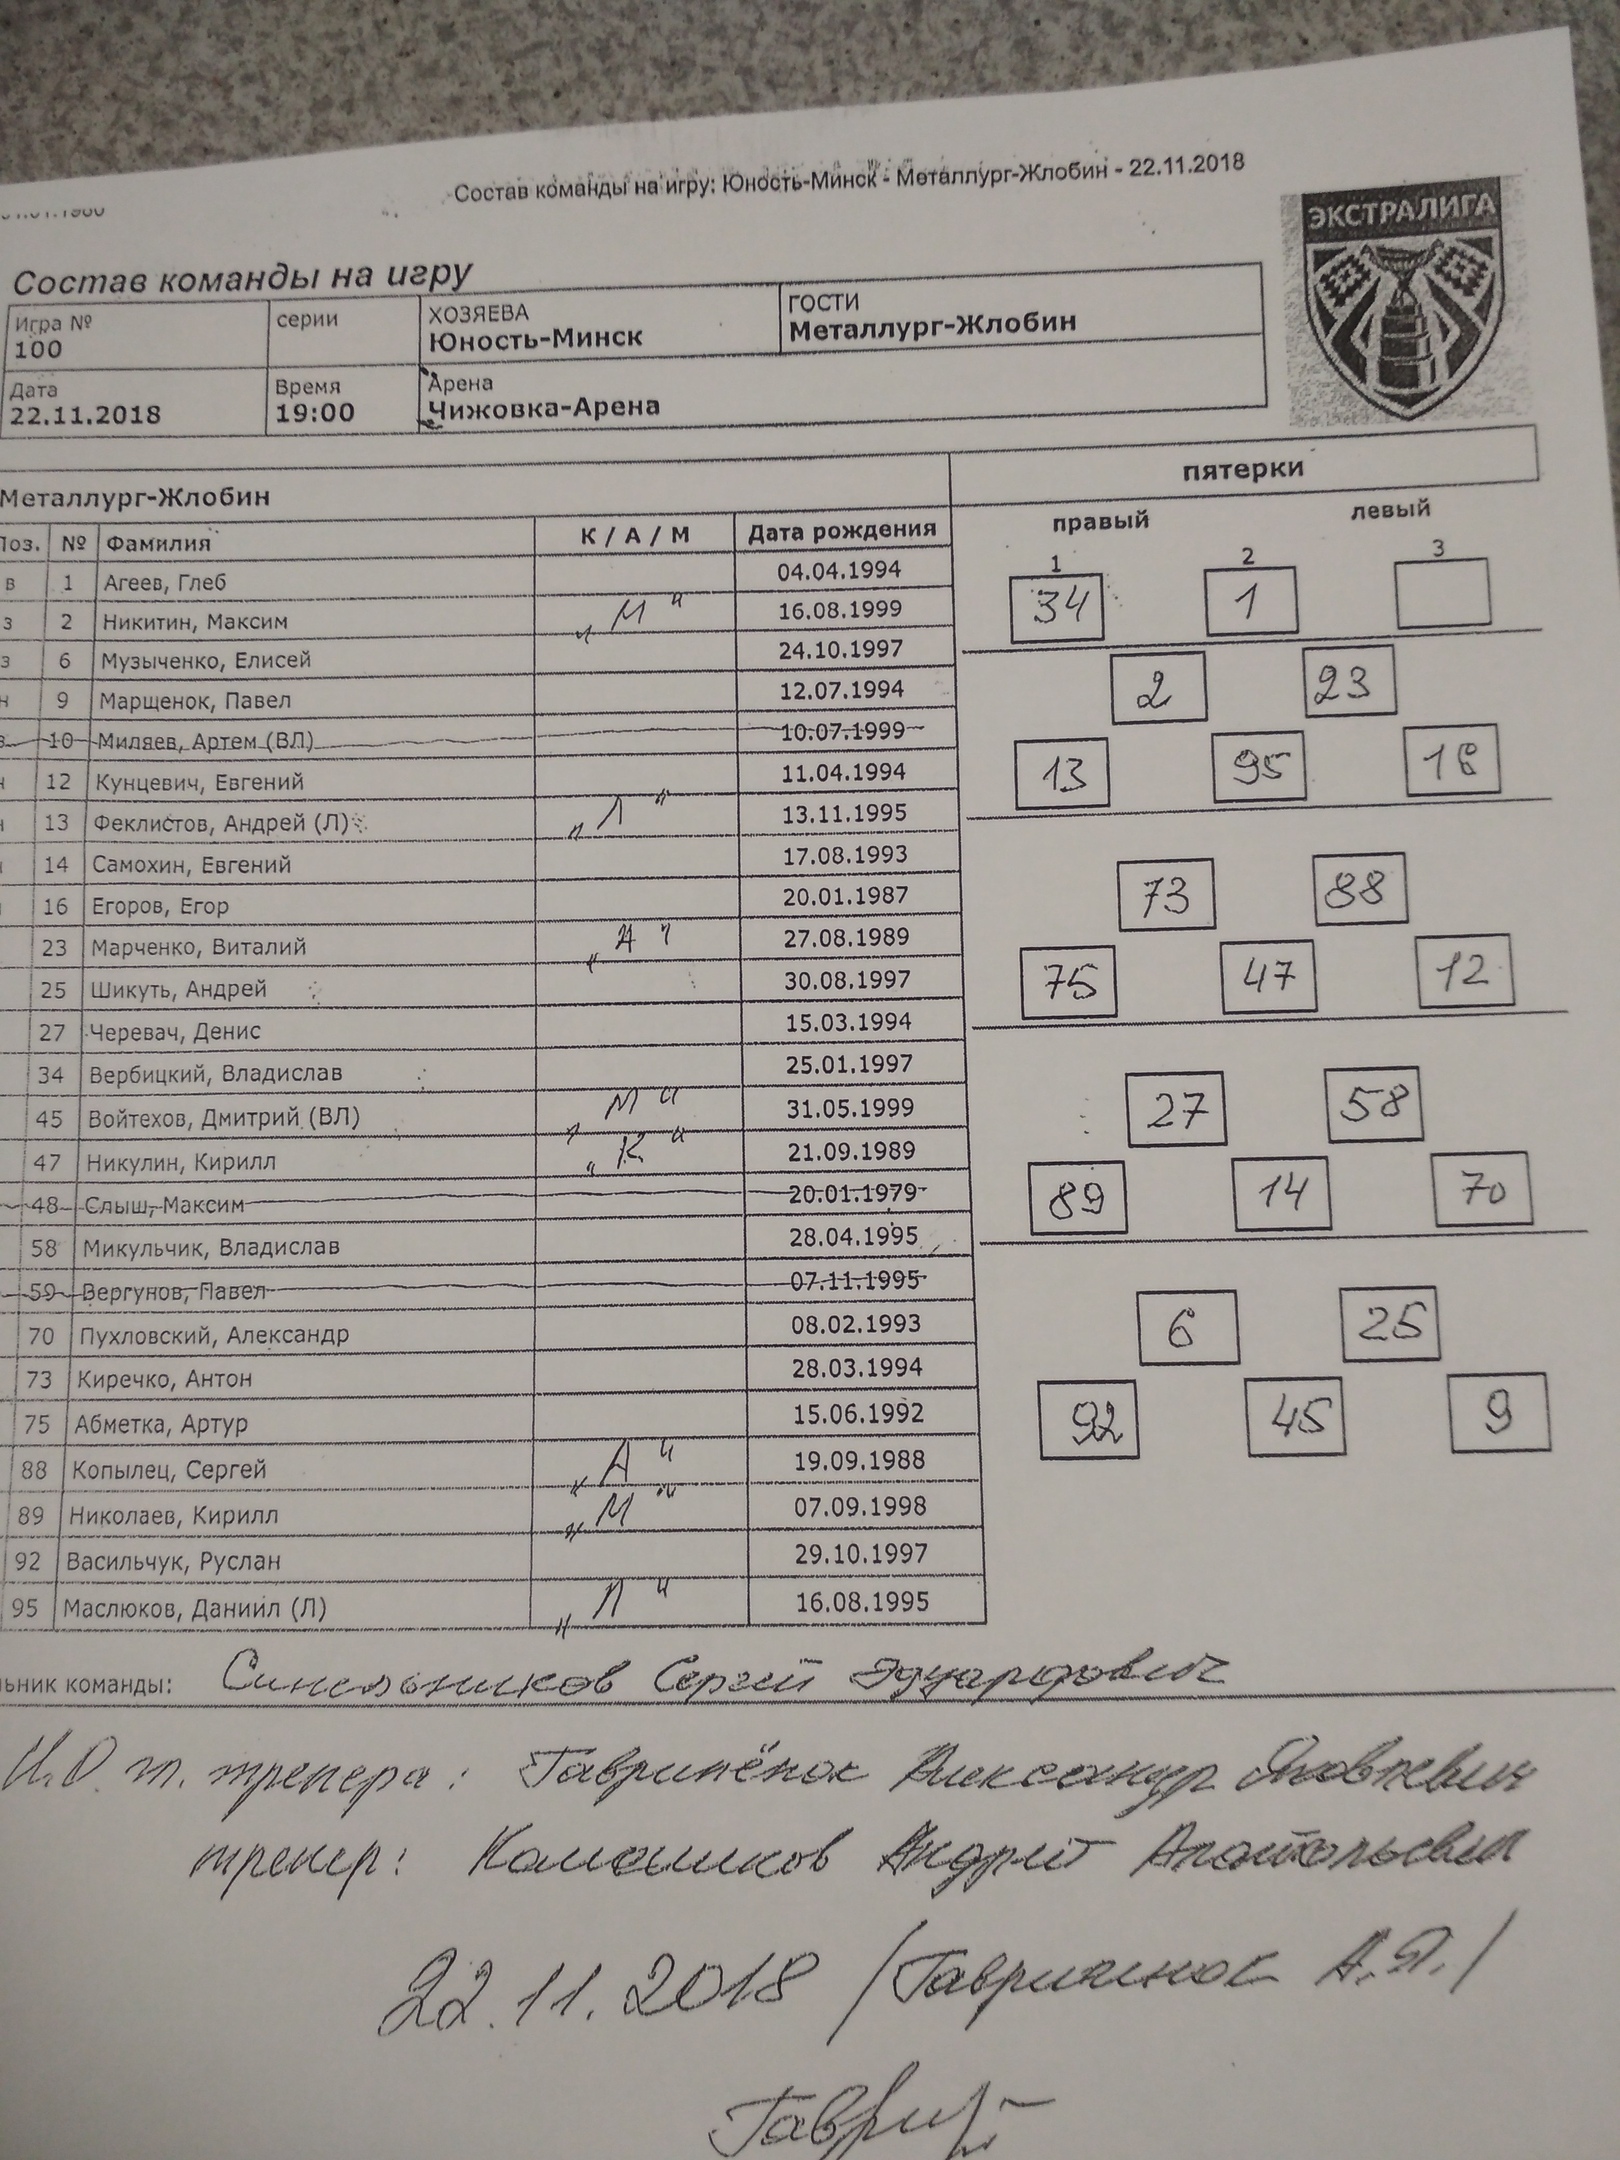 Состав команды на игру: Юность-Минск - Металлург-Жлобин - 22.11.2018
ЭКСТРАЛИГА
Состав команды на игру
Игра № серии ХОЗЯЕВА ГОСТИ
100 Юность-Минск Металлург-Жлобин
Дата Время Арена
22.11.2018 19:00 Чижовка-Арена
Металлург-Жлобин пятерки
правый левый
№ Фамилия К / А / М Дата рождения
1 2 3
в 1 Агеев, Глеб 04.04.1994
34 1
з 2 Никитин, Максим "М" 16.08.1999
з 6 Музыченко, Елисей 24.10.1997
2 23
н 9 Марщенок, Павел 12.07.1994
10 Миляев, Артем (ВЛ) 10.07.1999
13 95 18
12 Кунцевич, Евгений 11.04.1994
13 Феклистов, Андрей (Л) "Л" 13.11.1995
14 Самохин, Евгений 17.08.1993
73 88
16 Егоров, Егор 20.01.1987
23 Марченко, Виталий "А" 27.08.1989
75 47 12
25 Шикуть, Андрей 30.08.1997
27 Черевач, Денис 15.03.1994
34 Вербицкий, Владислав 25.01.1997
27 58
45 Войтехов, Дмитрий (ВЛ) "М" 31.05.1999
47 Никулин, Кирилл "К" 21.09.1989
89 14 70
48 Слыш, Максим 20.01.1979
58 Микульчик, Владислав 28.04.1995
59 Вергунов, Павел 07.11.1995
6 25
70 Пухловский, Александр 08.02.1993
73 Киречко, Антон 28.03.1994
92 45 9
75 Абметка, Артур 15.06.1992
88 Копылец, Сергей "А" 19.09.1988
89 Николаев, Кирилл "М" 07.09.1998
92 Васильчук, Руслан 29.10.1997
95 Маслюков, Даниил (Л) "Л" 16.08.1995
команды: Синельников Сергей Эдуардович
И.О. тренера: Гавринёнок Александр Яковлевич
тренер: Андрей Анатольевич
22.11.2018 /Гавриленок А.Я./